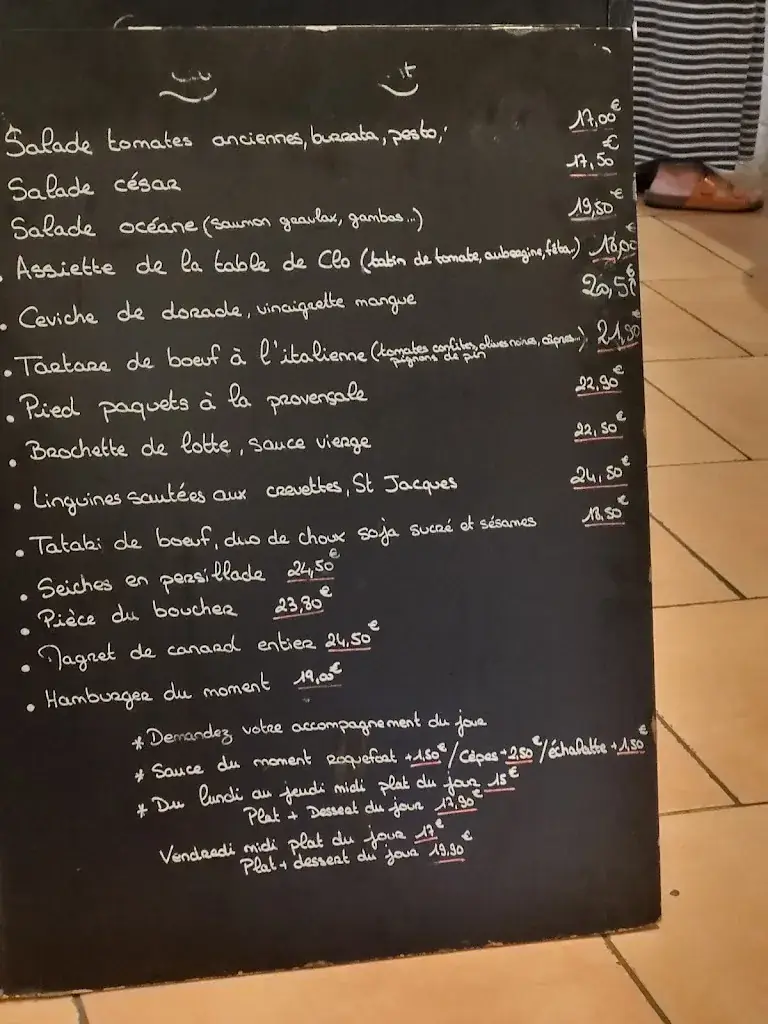 Salade tomates anciennes, burrata, pesto, 17,00€
Salade césar 17,50€
Salade océane (saumon gravlax, gambas...) 19,50€
Assiette de la table de Clo (tatin de tomate, aubergine, féta.)
• Ceviche de dorade, vinaigrette mangue 20,5€
• Tartare de boeuf à l'italienne (tomates confites, olives noires, câpres... 21,90
pignons de pin
• Pied paquets à la provençale 22,90€
• Brochette de lotte, sauce vierge 22,50€
• Linguines sautées aux crevettes, St Jacques 24,50€
• Tataki de boeuf, duo de choux soja sucré et sésames 18,50€
• Seiches en persillade 24,50€
• Pièce du boucher 23,80€
• Magret de canard entier 24,50€
• Hamburger du moment 19,00€
* Demandez votre accompagnement du jour
* Sauce du moment roquefort +1,50€/Cèpes+2,50€/échalotte +1,50€
* Du lundi au jeudi midi plat du jour 15€
Plat + Dessert du jour 17,90€
Vendredi midi plat du jour 17€
Plat + dessert du jour 19,90€